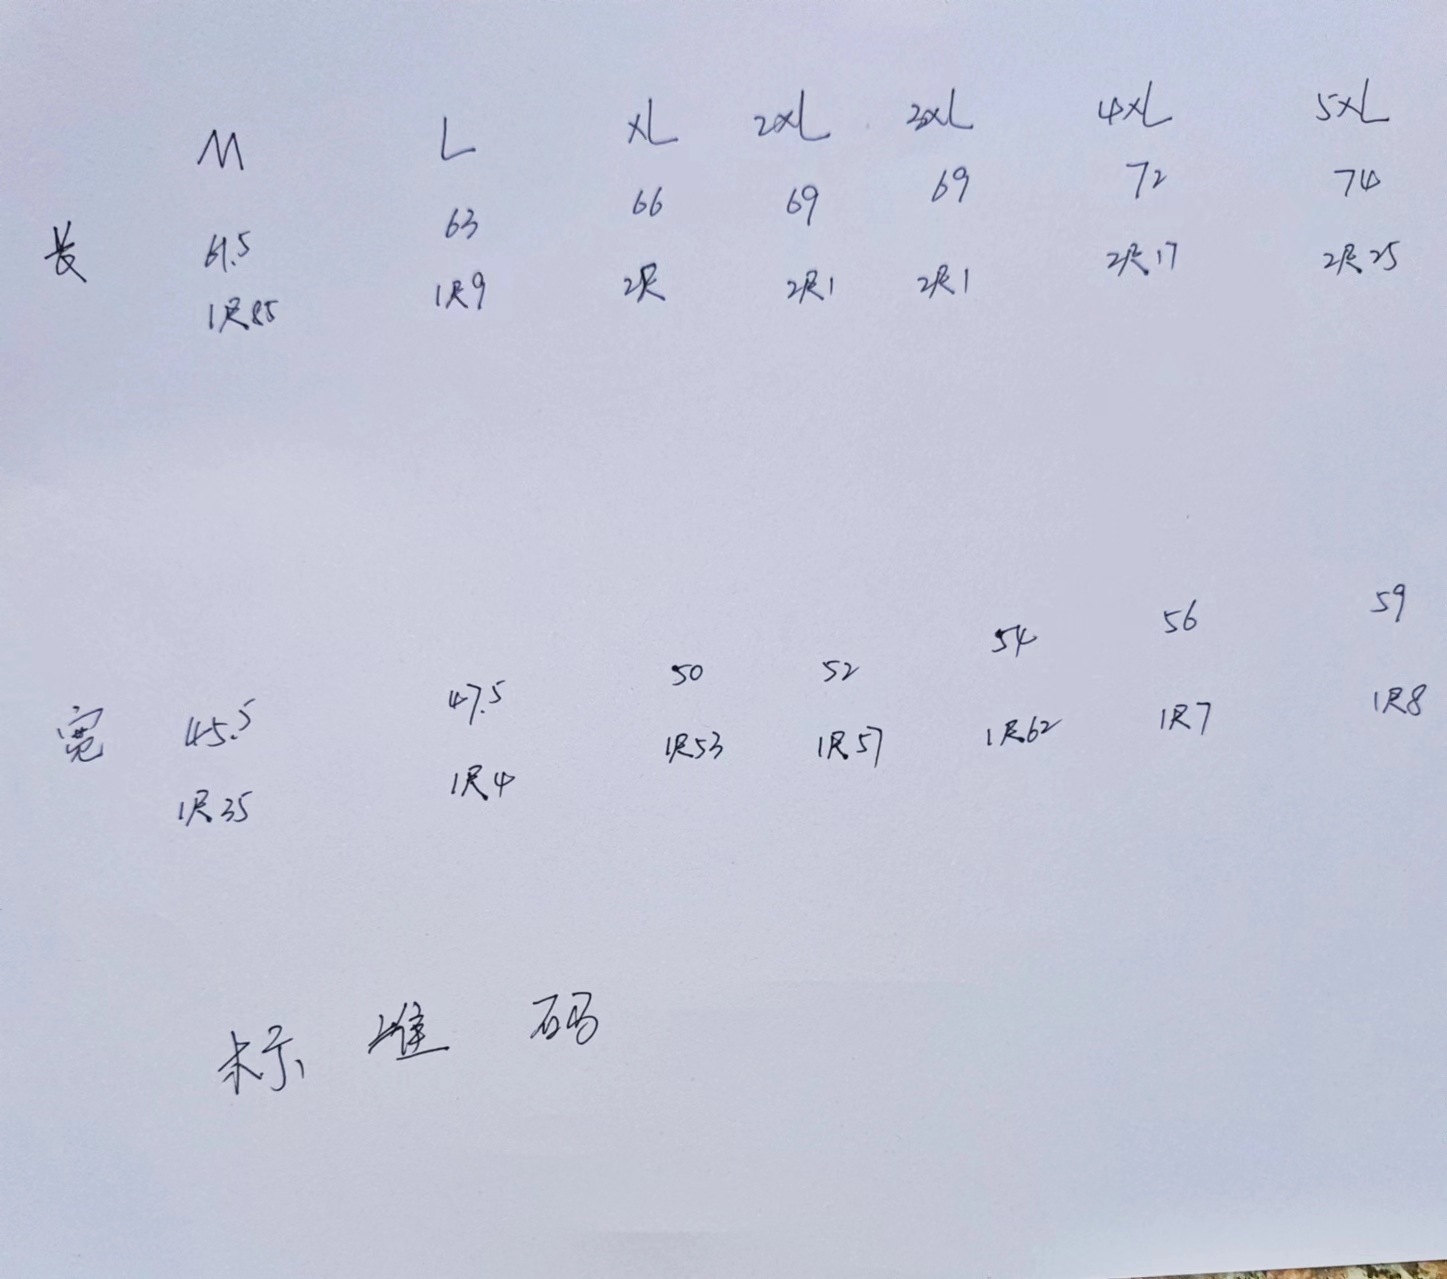 M L XL 2XL 3XL 4XL 5XL
长 61.5 63 66 69 69 72 74
1尺85 1尺9 2尺 2尺1 2尺1 2尺17 2尺25
宽 45.5 47.5 50 52 54 56 59
1尺35 1尺4 1尺53 1尺57 1尺62 1尺7 1尺8
标准码